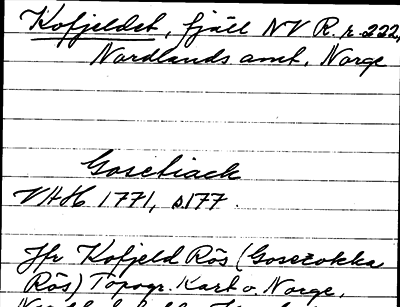 Kofjeldet, fjäll NV R. r. 222,
Nordlands amt, Norge
Gosetiack
VHH 1771, s177.
Jfr Kofjeld Rös (Gosetokka
Rös) Topogr. Kart o. Norge,